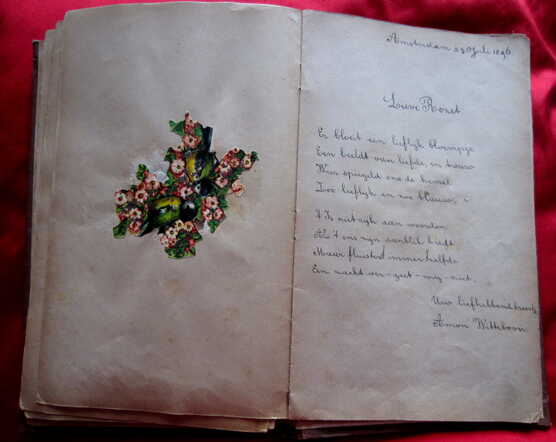 Amsterdam 29 Juli 1896
Lieve Roset
Er bloeit een lieflijk bloempje
Een beeldt van liefde en trouw
Weer spiegeld ons de hemel
Zoo lieflijk en zoo blauw
't Is niet rijk aan woorden
Als 't ons zijn aanblik bieft
Maar fluisterd immer 
Een zacht ver-geet-mij-niet.
Uw liefhebbend
Anton Witteboon